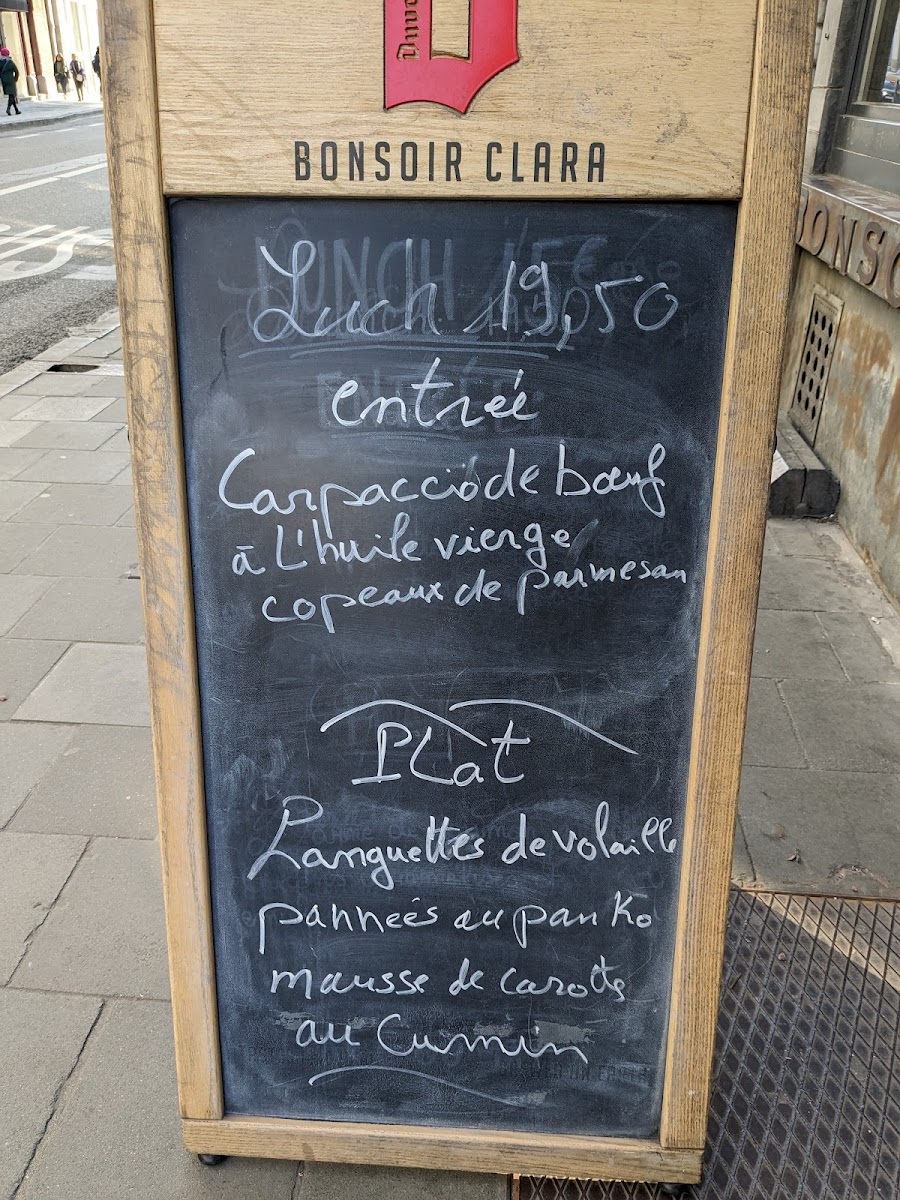 BONSOIR CLARA
Luch 19,50
entrée
Carpaccio de bœuf
à L'huile vierge
copeaux de parmesan
PLat
Languettes de volaille
pannées au panko
mausse de carotts
au Cumin
BONSO